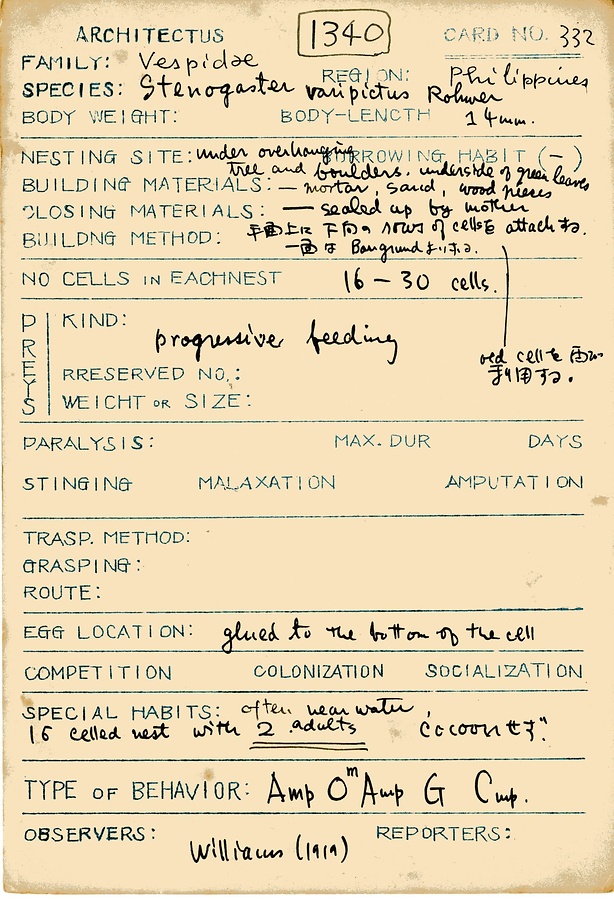 ARCHITECTUS 1340 CARD NO. 332
FAMILY: Vespidae
REGION: Philippines
SPECIES: Stenogaster varipictus Rohwer
BODY WEIGHT: BODY-LENGTH 14mm.
NESTING SITE: under overhanging BURROWING HABIT (-)
tree and boulders. underside of green leaves
BUILDING MATERIALS: — mortar, sand, wood pieces
CLOSING MATERIALS: — sealed up by mother
BUILDNG METHOD: 平面上に下向の rows of cellsを attachする.
一面は
NO CELLS IN EACHNEST 16-30 cells.
PREYS
KIND:
progressive feeding
old cellを再び
利用する.
RRESERVED NO.:
WEIGHT OR SIZE:
PARALYSIS: MAX. DUR DAYS
STINGING MALAXATION AMPUTATION
TRASP. METHOD:
GRASPING:
ROUTE:
EGG LOCATION: glued to the bottom of the cell
COMPETITION COLONIZATION SOCIALIZATION
SPECIAL HABITS: often near water,
16 celled nest with 2 adults cocoonせず.
TYPE OF BEHAVIOR: Amp O^m Amp G Cmp.
OBSERVERS: REPORTERS:
Williams (1919)